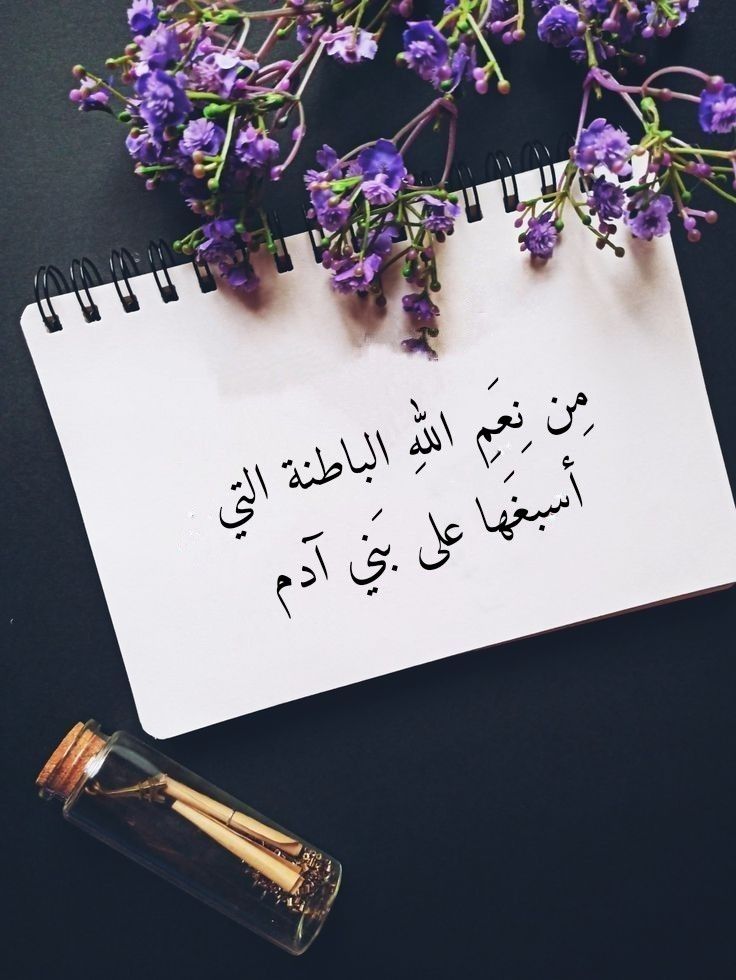 مِن نِعَمِ اللهِ الباطنة التي
أسبغَها على بَني آدم